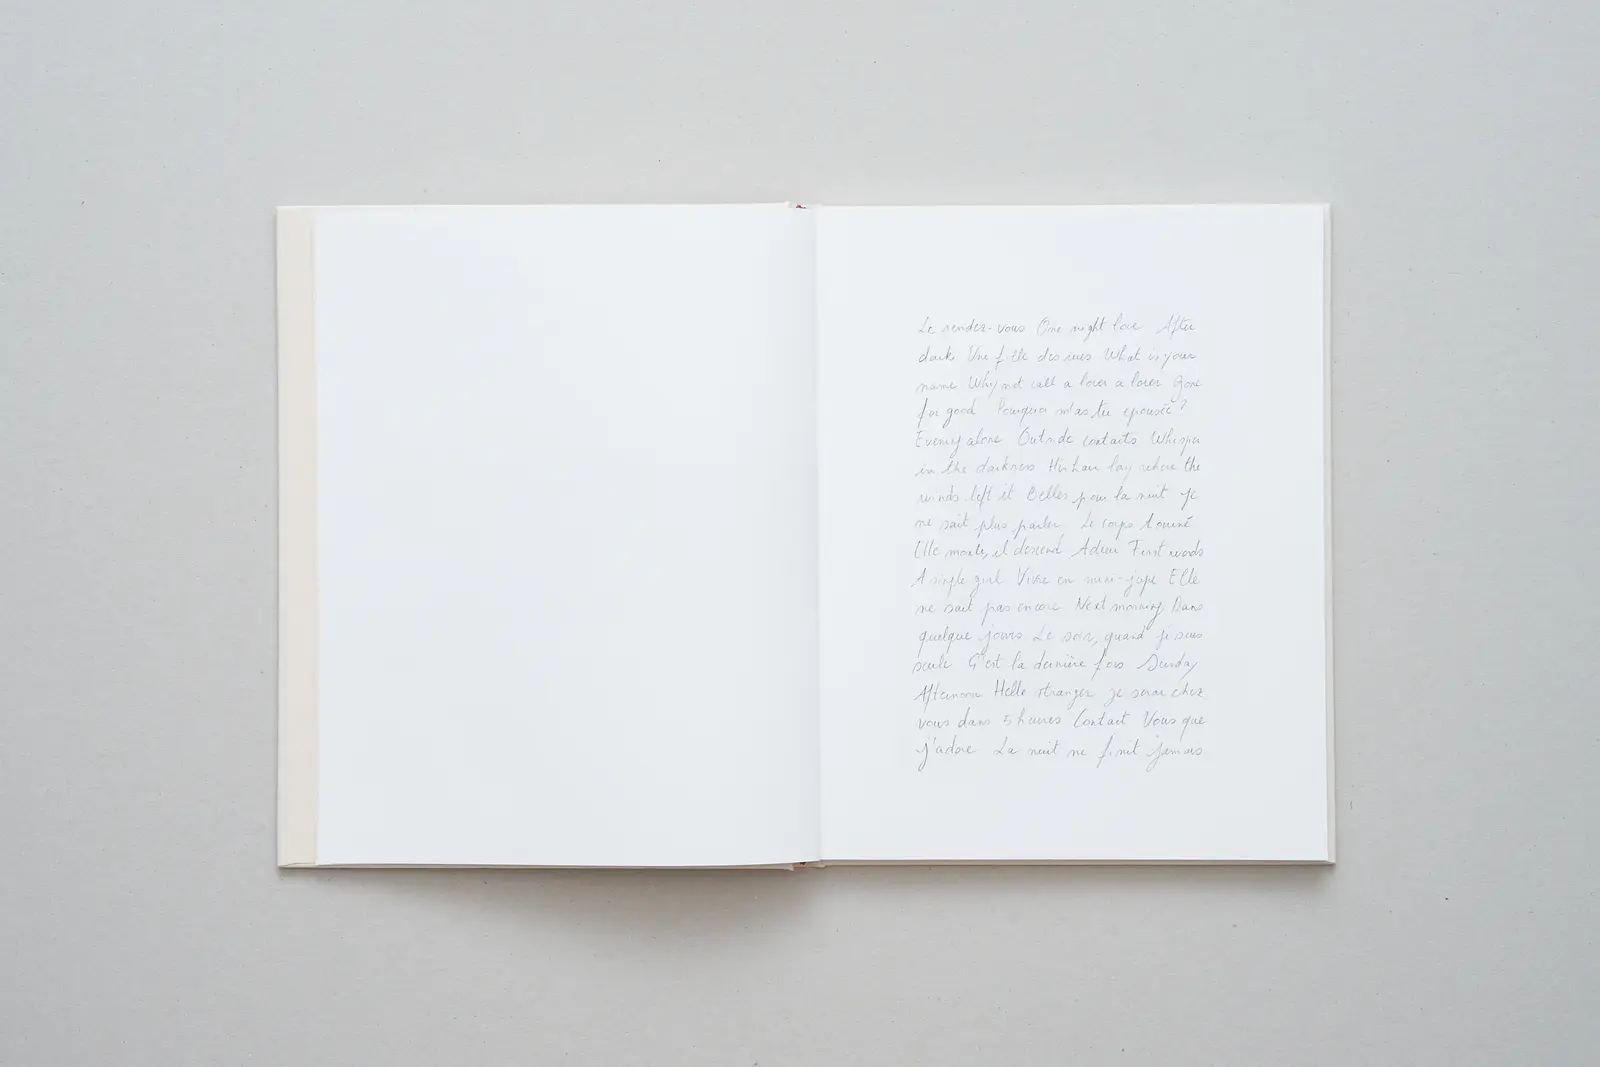 Le rendez-vous One night love After
dark Une fille des rues What is your
name Why not call a lover a lover Gone
for good Pourquoi m'as tu épousée ?
Evening alone Outside contacts Whisper
in the darkness His hair lay where the
winds left it Belles pour la nuit je
ne sait plus parler Le corps tourné
Elle monte, il descend Adieu First words
A single girl Vivre en mini-jupe Elle
ne sait pas encore Next morning Dans
quelque jours Le soir, quand je suis
seule C'est la dernière fois Sunday
Afternoon Hello stranger je serai chez
vous dans 5 heures Contact Vous que
j'adore La nuit ne finit jamais